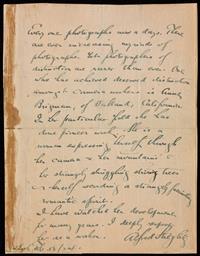 Every one photographs now a days. There
are ever increasing myriads of
photographs. Yet photographers of
distinction are rarer than ever. One
who has achieved deserved distinction
amongst camera workers is Annie
Brigman, of Oakland, California.
In her particular field she has
done pioneer work. She is a
woman expressing herself through
her camera & her mountains &
her strangely struggling shining trees
& herself revealing a strangely
romantic spirit.
I have watched her development
for many years. I deeply respect
her as a worker.
Alfred Stieglitz